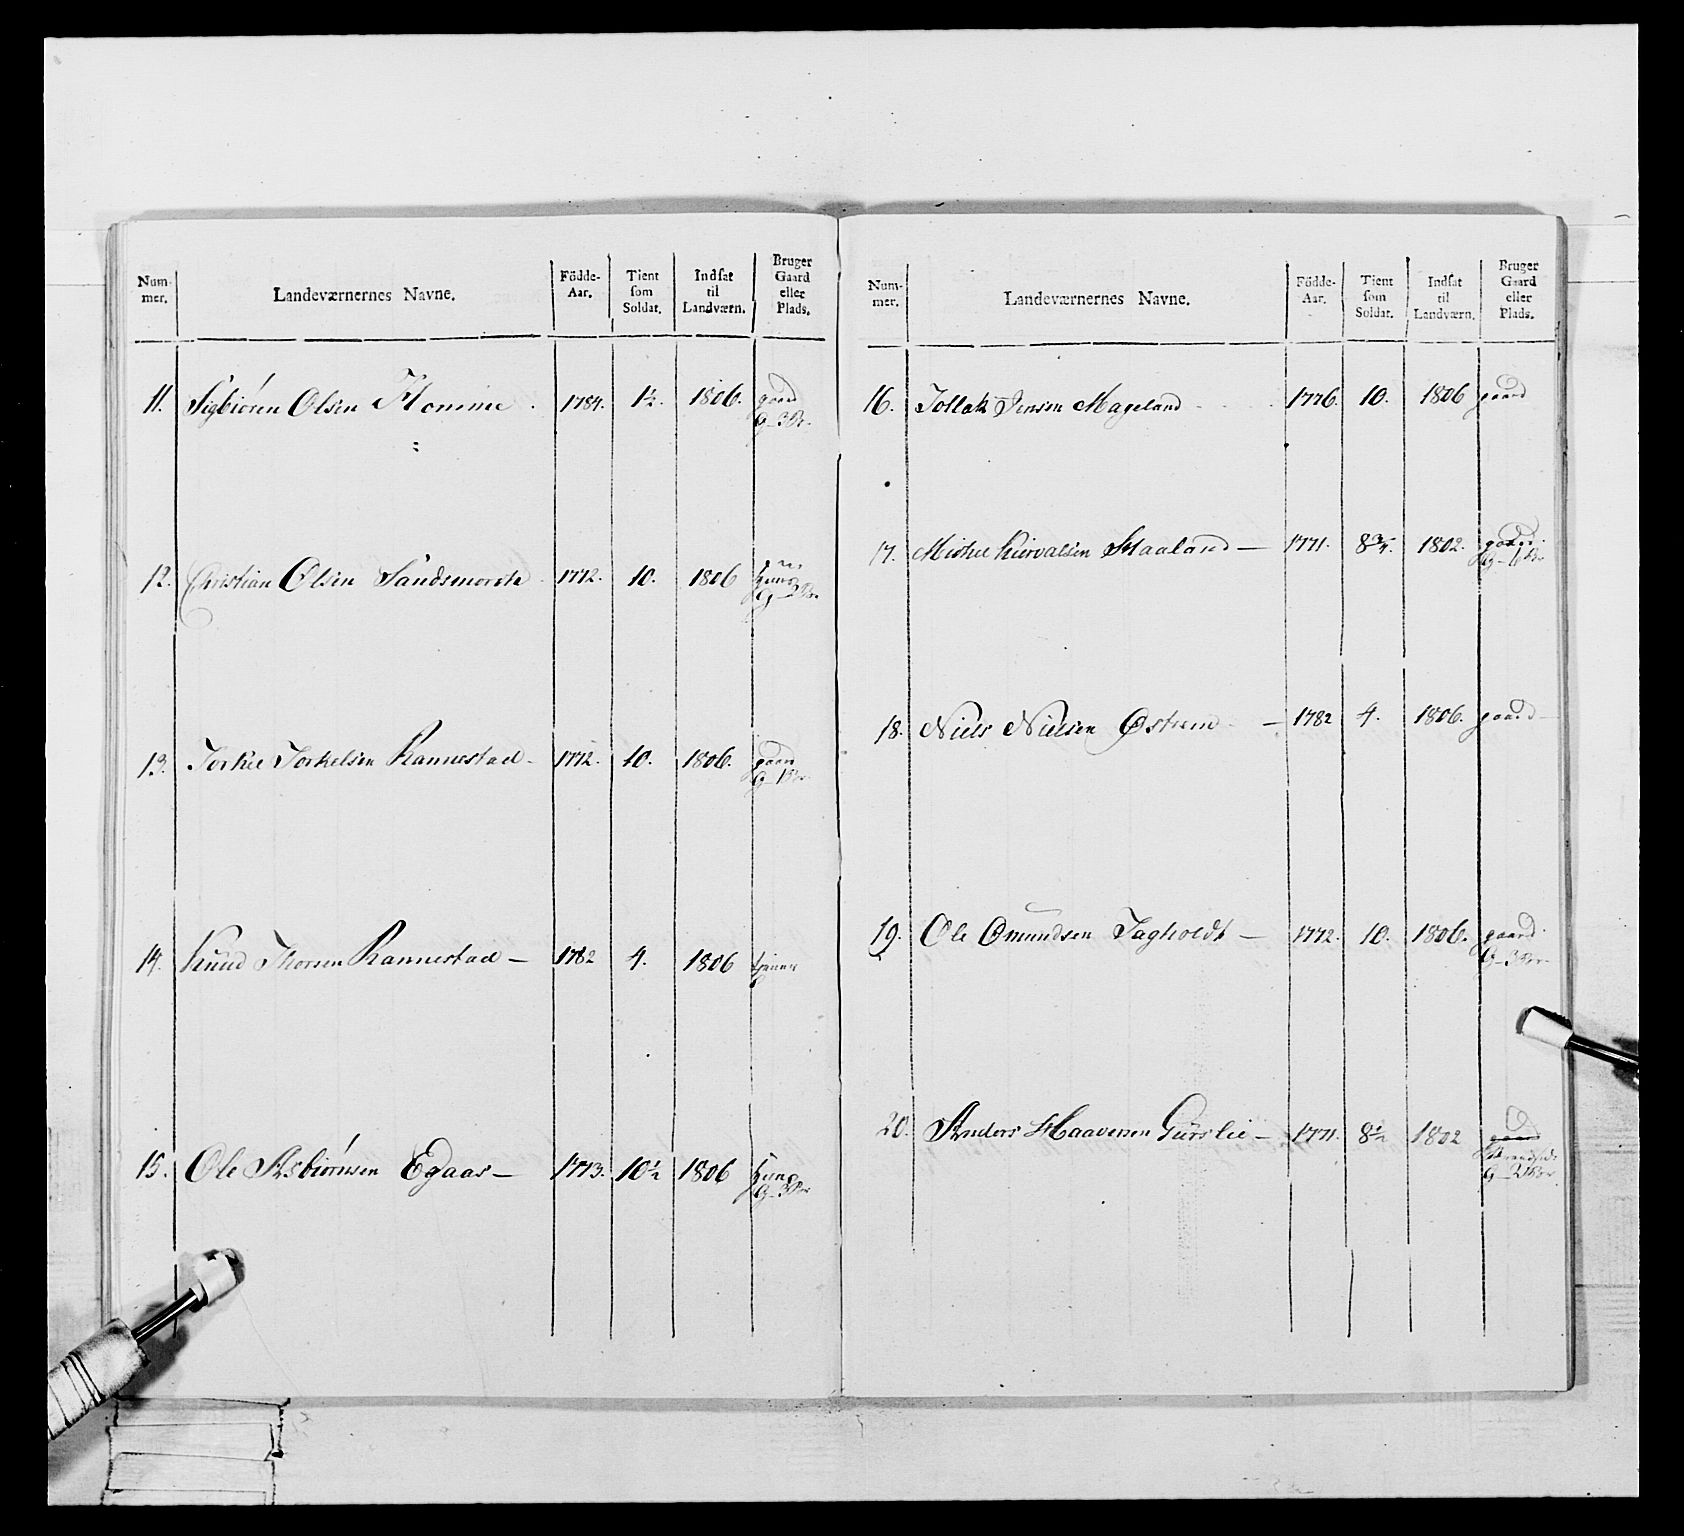 Num-
mer.
Landeværnernes Navne.
Födde-
Aar.
Tient
som
Soldat.
Indsat
til
Landværn.
Bruger
Gaard
eller
Plads.
11. Sigbiören Olsen Homme. 1784. 1½. 1806. gaard
G-3Br.
12. Christian Olsen Sandsmorck 1772. 10. 1806
13. Torkel Torkelsen Rannestad - 1772. 10. 1806. gaard
G-1Br.
14. Knud Thorsen Rannestad - 1782 4. 1806 tjener
15. Ole Asbiörnsen Egaas - 1773. 10½ 1806
G-3Br
Num-
mer.
Landeværnernes Navne.
Födde-
Aar.
Tient
som
Soldat.
Indsat
til
Landværn.
Bruger
Gaard
eller
Plads.
16. Tollak Jensen Mageland 1776. 10. 1806 gaard
17. Michel Siurvalsen Staaland - 1771. 8¾. 1802. gaard.
18. Niels Nielsen Östrem - 1782 4. 1806. gaard -
19. Ole Omundsen Tagholdt - 1772. 10. 1806. gaard.
G-3Br-
20. Anders Haaversen Gurslie - 1771. 8½ 1802 gaard
G-2Br.